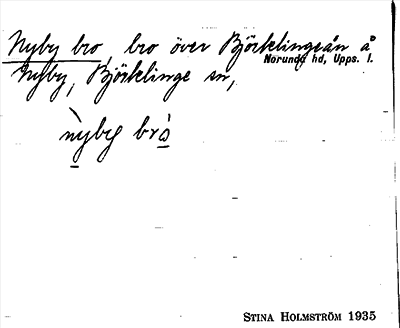 Nyby bro, bro över Björklingeån å
Norunda hd, Upps. l.
Nyby, Björklinge sn,
nỳby brò
STINA HOLMSTRÖM 1935